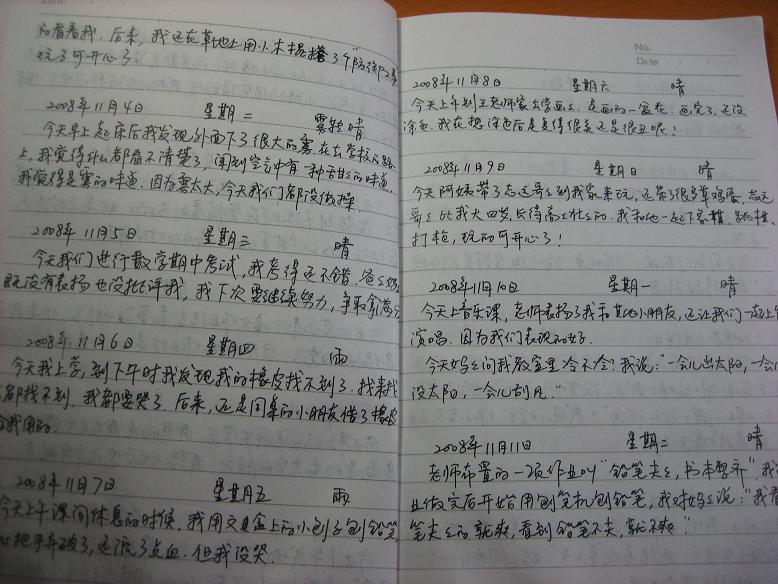 Date
问看看我. 后来, 我还在草地上用小木棍搭了个"防御工事
玩了可开心了!
2008年11月4日 星期二 雾转晴
今天早上起床后我发现外面下了很大的雾. 在去学校的路
上, 我觉得什么都看不清楚了, 闻到空气中有一种甜的味道,
我觉得是雾的味道. 因为雾太大, 今天我们都没做操
2008年11月5日 星期三 晴
今天我们进行数学期中考试, 我考得还不错. 爸爸妈
既没有表扬也没批评我, 我下次要继续努力, 争取拿满分
2008年11月6日 星期四 雨
今天我上学, 到下午时我发现我的橡皮找不到了. 找来找
都找不到, 我都要哭了. 后来, 还是同桌的小朋友借了橡皮
给我用的.
2008年11月7日 星期五 雨
今天上午课间休息的时候, 我用文具盒上的小刨子刨铅笔,
心把手弄破了, 还流了点血. 但我没哭.
No.
Date
2008年11月8日 星期六 晴
今天上午到王老师家去学画画. 是画的一盆花. 画完了, 还没
涂色. 我在想涂色后是变得很美还是很丑呢?
2008年11月9日 星期日 晴
今天阿姨带了志远哥哥到我家来玩, 还带了很多草鸡蛋. 志远
哥哥比我大四岁, 长得高高壮壮的. 我和他一起下象棋、跳棋、
打枪, 玩的可开心了!
2008年11月10日 星期一 晴
今天上音乐课, 老师表扬了我和其他小朋友, 还让我们一起上
演唱. 因为我们表现的好.
今天妈妈问我教室里冷不冷? 我说: "一会儿出太阳, 一会
没太阳, 一会儿刮风."
2008年11月11日 星期二 晴
老师布置的一项作业叫"铅笔尖尖, 书本整齐" 我
业做完后开始用刨笔机刨铅笔, 我对妈妈说: "我看
笔尖尖的就爽, 看到铅笔不尖, 就不爽"